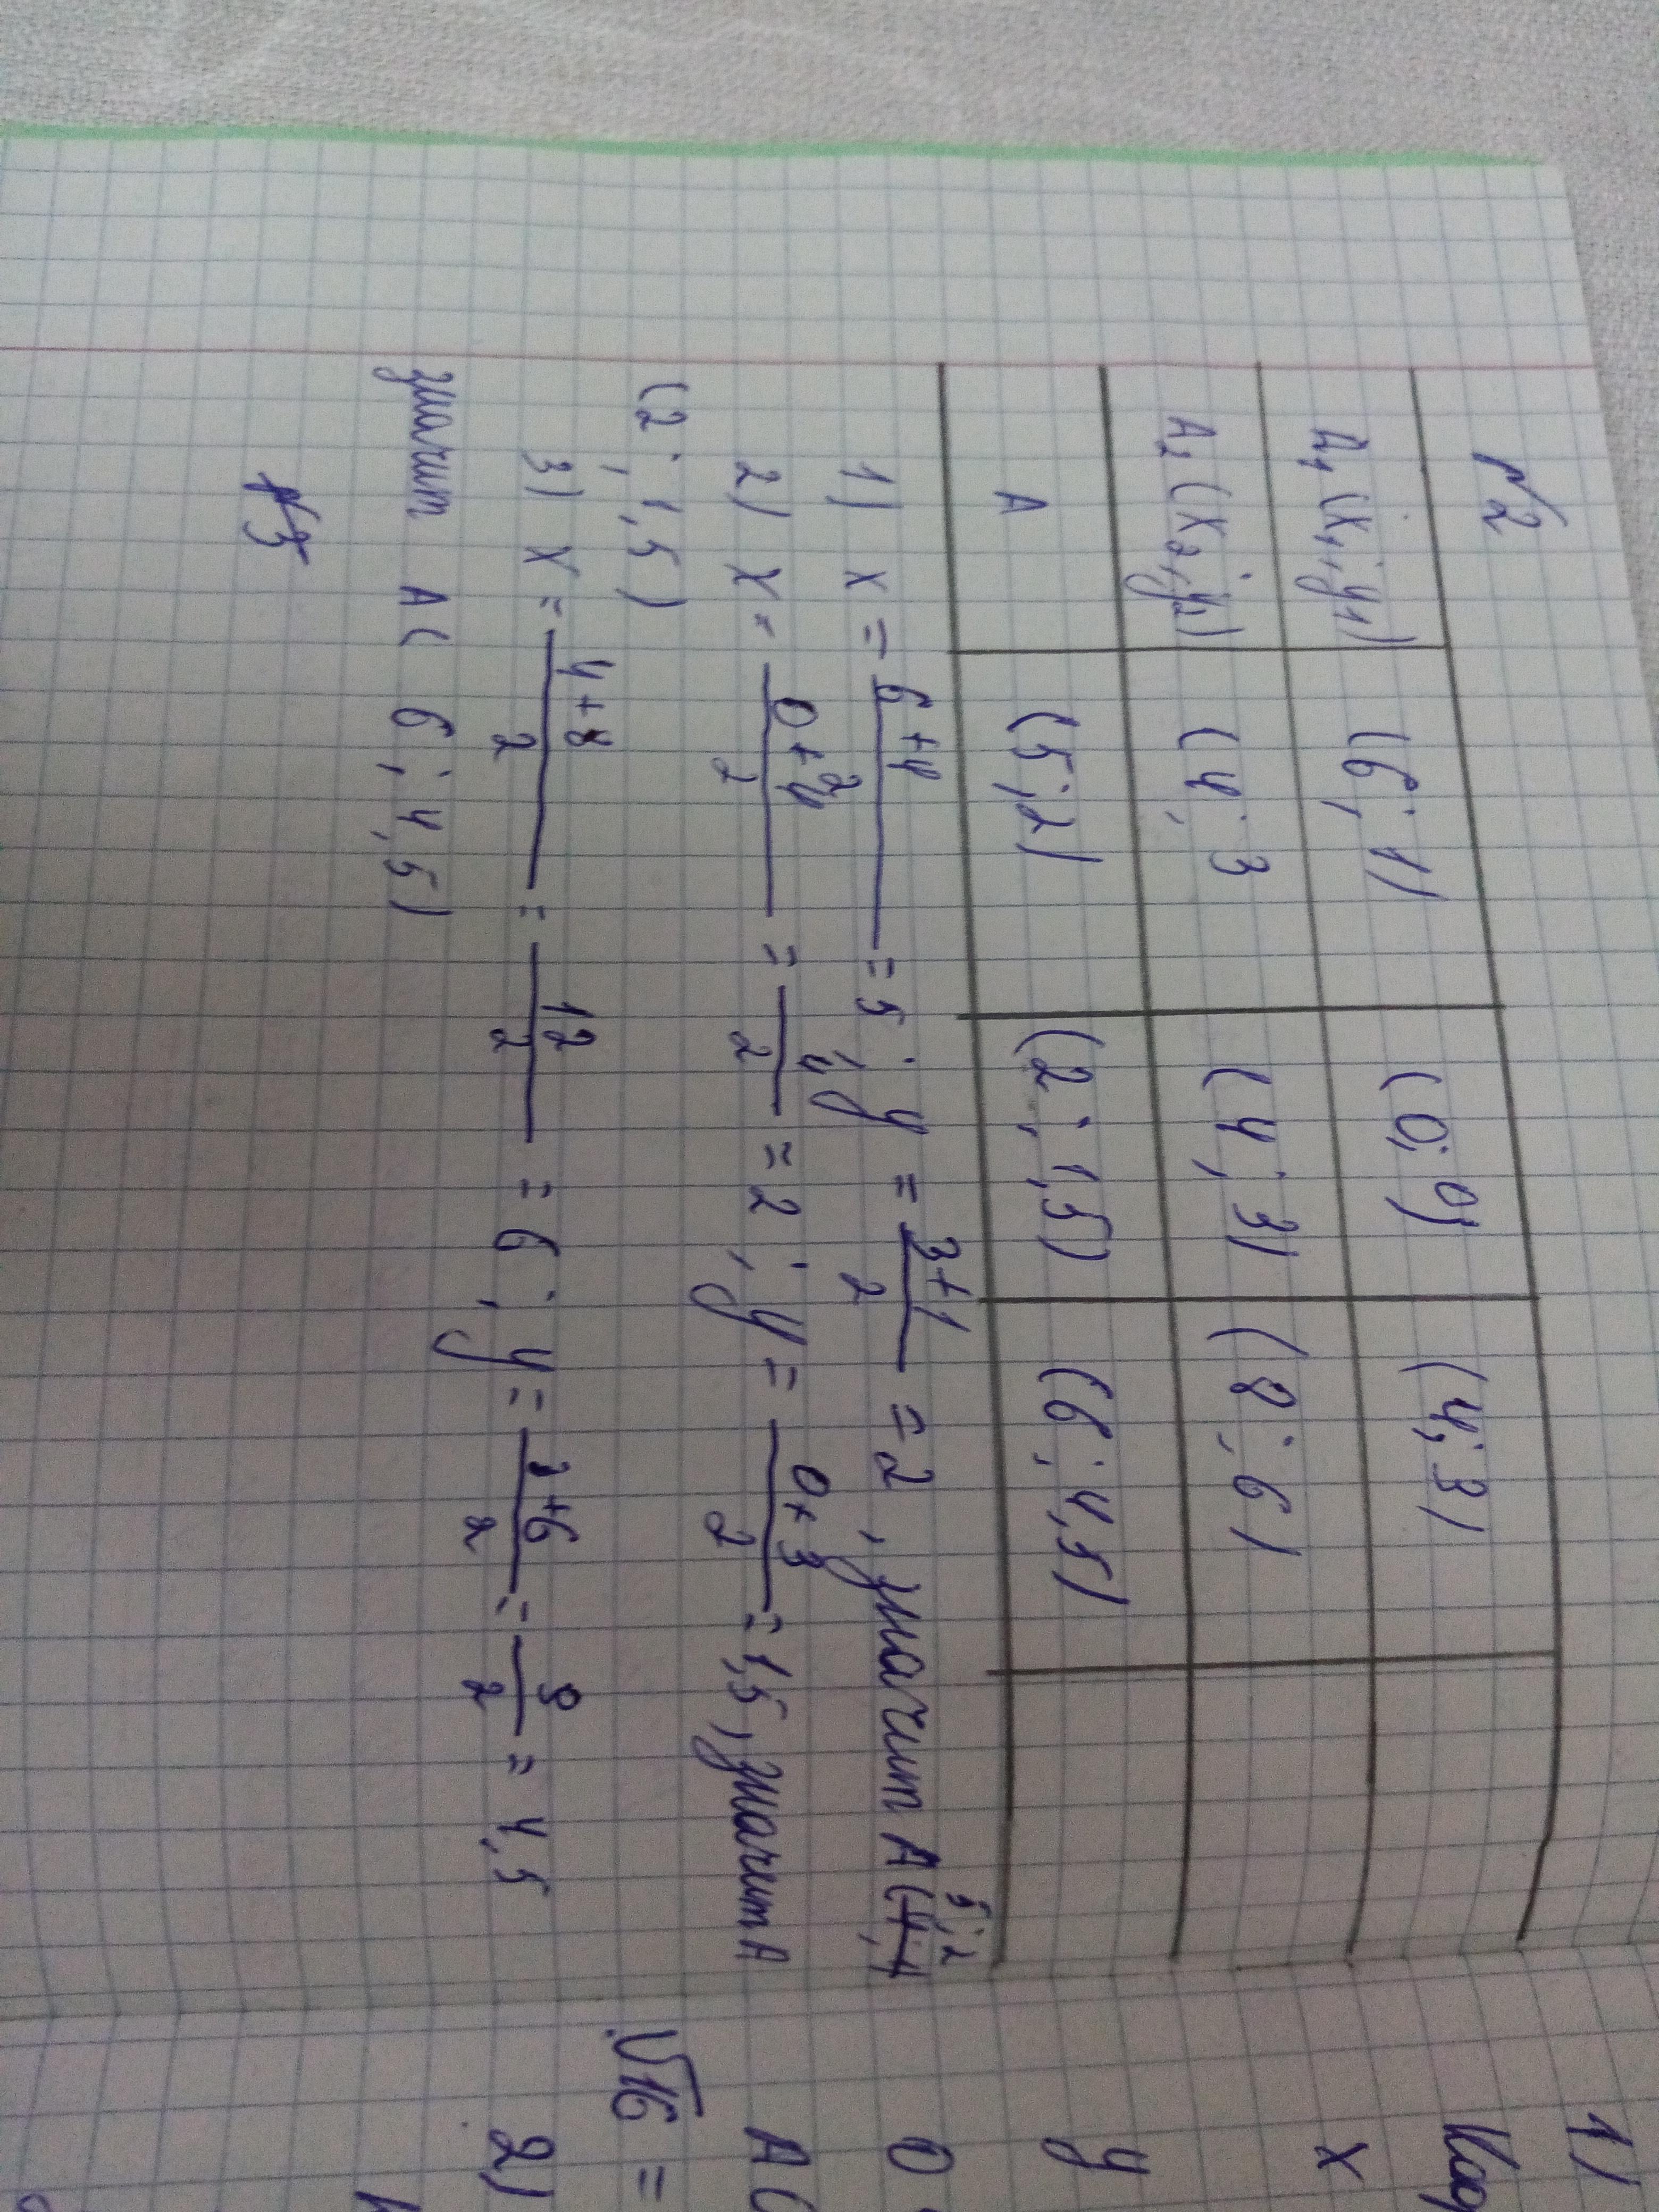 №2
A₁ (x₁; y₁) (6; 1) (0; 0) (4; 3)
A₂ (x₂; y₂) (4; 3 (4; 3) (8; 6)
A (5; 2) (2; 1,5) (6; 4,5)
1) x = 6+4/2 = 5; y = 3+1/2 = 2, значит A (5; 2
2) x = 0+4/2 = 4/2 = 2; y = 0+3/2 = 1,5, значит A
(2; 1,5)
3) x = 4+8/2 = 12/2 = 6; y = 3+6/2 = 9/2 = 4,5
значит A( 6; 4,5)
№3
1)
x
y
0
A(
√16 =
2)